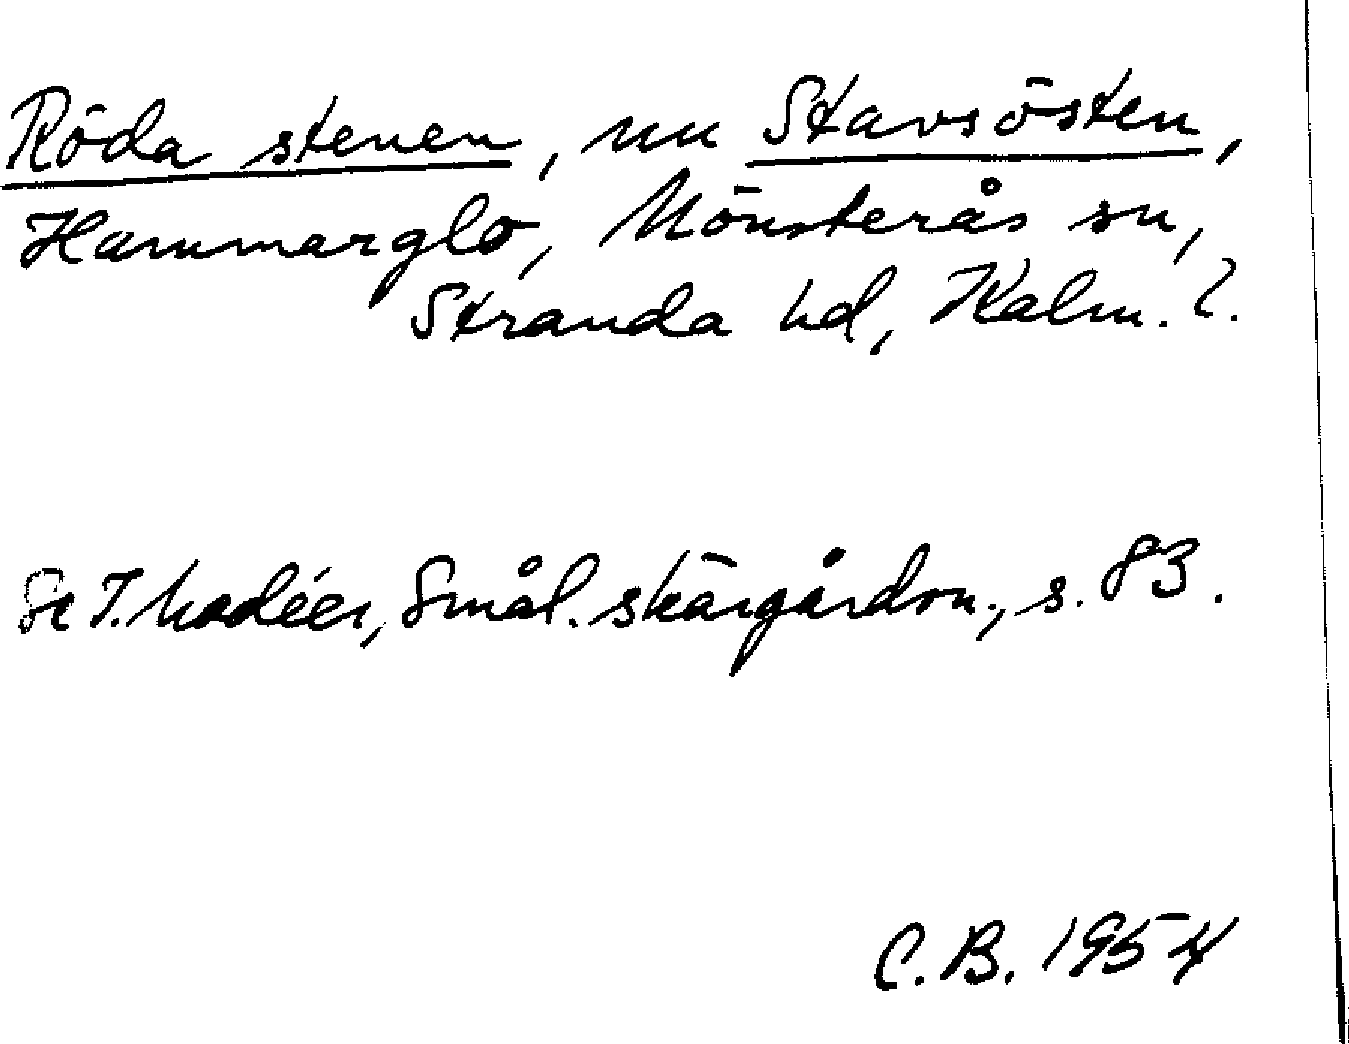 Röda stenen, nu Stavsösten,
Hammarglo, Mönsterås sn,
Stranda hd, Kalm. l.
Se T. Modéer, Smål. skärgårdsn., s. 83.
C. B. 1954